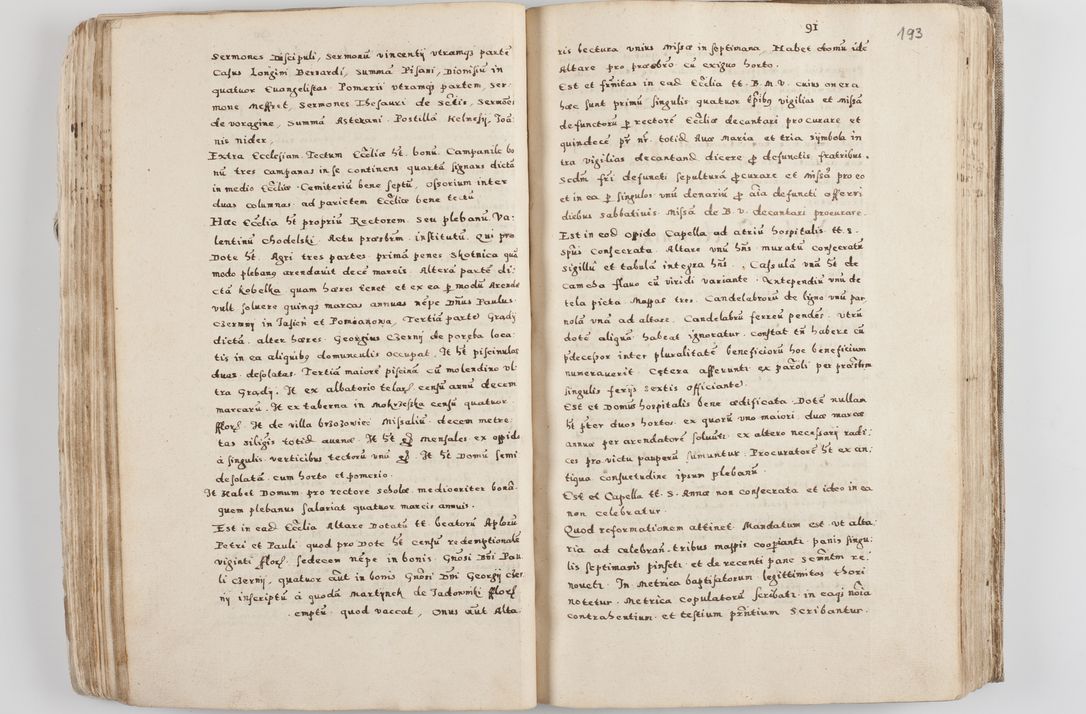 Sermones Discipuli, Sermonũ vincentij vtramq; partẽ
Casus Longini Bernardi, Summã Pisani, Dionisiũ in
quatuor Euangelistas. Pomerii vtramq; partem, Ser:
mone Meffret, Sermones Thesauri de Sctis, Sermões
de voragine, Summã Astexani. Postillã Kelnesij, Joã:
nis nider,
Extra Ecclesiam. Tectum Eccliæ ht. bonũ. Campanile bo
nũ tres campanas in se continens quartã signans dictã
in medio Eccliæ. Cemiteriũ bene septũ, ossorium inter
duas columnas ad parietem Eccliæ bene tectũ.
Hæc Ecclia ht propriũ Rectorem. seu plebanũ. Va:
lentinũ Chodelski. Actu præsbrm. institutũ. Qui pro
Dote ht. Agri tres partes. prima penes Skotnica quã
modo plebanus arendauit decẽ marcis. Alterã partẽ di:
ctã Kobelka quam hæres tenet et ex ea p modũ Arendæ
vult soluere quinq; marcas annuas nẽpe Dñus Paulus
Czernny in Jasień et Pomianowa, Tertiã partẽ Grady
dictã. alter hæres. Georgius Czerny de poręba loca:
tis in ea aliquibus domunculis occupat. It ht piscinulas
duas desolatas. Tertiã maiorẽ piscinã cũ molendino vl:
tra Grady. It ex albatorio telarz censũ annũ decem
marcarũ. It ex taberna in Mokrzeska censũ quatuor
fflorz. It de villa brzozowiec Missaliũ decem metre:
tas siligis totid auenæ. It ht gr mensales ex oppido
à singulis verticibus tectorũ vnũ gr. It ht Domũ semi
desolatã. cum horto et pomerio.
It Habet Domum pro rectore scholæ mediocriter bonã.
quem plebanus salariat quatuor marcis annuis.
Est in ead Ecclia Altare Dotatũ tt beatorũ Aplorũ
Petri et Pauli quod pro Dote ht censũ redemptionalẽ
viginti fflorz. sedecem nẽpe in bonis Gnosi Dni Pau
li Czernij, quatuor aũt in bonis Gnosi Dni Georgij Czer
nij inscriptũ à quodã Martynek de Jadowniki fflorz
emptũ quod vaccat, Onus aũt Alta:
91
193
ris lectura vnius Missæ in septimana, Habet domũ idẽ
Altare pro præsbro cũ exiguo horto.
Est et frnitas in ead Ecclia tt. B. M. V. cuius onera
hæc sunt primũ singulis quatuor tpibus vigilias et Missã
defunctorũ p rectorẽ Eccliæ decantari procurare et
quindecẽ pr nr. totid Auæ Maria et tria symbola in
tra vigilias decantand dicere p defunctis fratribus.
Scdm fri defuncti sepulturã pcurare et Missã pro eo
et in ea p singulos vnũ denariũ p aia defuncti offerri
diebus sabbatiuis Missã de B. V. decantari procurare.
Est in eod oppido Capella ad atriũ hospitalis tt. S.
spus consecrata. Altare vnũ hñs muratũ consecratũ
sigillũ et tabulã integra hñs. Casulã vnã ht de
Camcha flauo cũ viridi variante. Antependiũ vnũ de
tela picta. Mappas tres. Candelabrorũ de ligno vnũ par,
nolã vnã ad altare. Candelabrũ ferreũ pendẽs. Vtrũ
dotẽ aliquã habeat ignoratur. constat tñ habere cũ
pdecessor inter pluralitatẽ beneficiorũ hoc beneficium
numerauerit. Cetera afferunti ex paroli per præstm
singulis ferijs sextis officiante.
Est et Domus hospitalis bene ædificata Dotẽ nullam
ht pter duos hortos. ex quorũ vno maiori duæ marcæ
annuæ per arendatorẽ soluuntur. ex altero necessarij radi:
ces pro victu pauperũ sumuntur. Procuratorẽ ht ex an:
tiqua consuetudine ipsum plebanũ.
Est et Capella tt. S. Annæ non consecrata et ideo in ea
non celebratur.
Quod reformationem attinet. Mandatum est vt alta:
ria ad celebran. tribus mappis coopianti. panis singu:
lis septimanis pinseti et de recenti pane Semntm re:
noueti. In Metrica baptisatorum legittimitas thori
notetur. Metrica copulatorũ scribati in eaq; noia
contrahentium et testium prntium Scribantur.